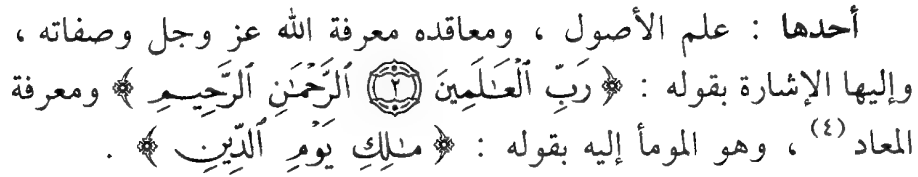 أحدها : علم الأصول ، ومعاقده معرفة الله عز وجل وصفاته ،
وإليها الإشارة بقوله : ﴿ رَبِّ ٱلْعَٰلَمِينَ ۝٢ ٱلرَّحْمَٰنِ ٱلرَّحِيمِ ﴾ ومعرفة
المعاد (٤) ، وهو المومأ إليه بقوله : ﴿ مَٰلِكِ يَوْمِ ٱلدِّينِ ﴾ .